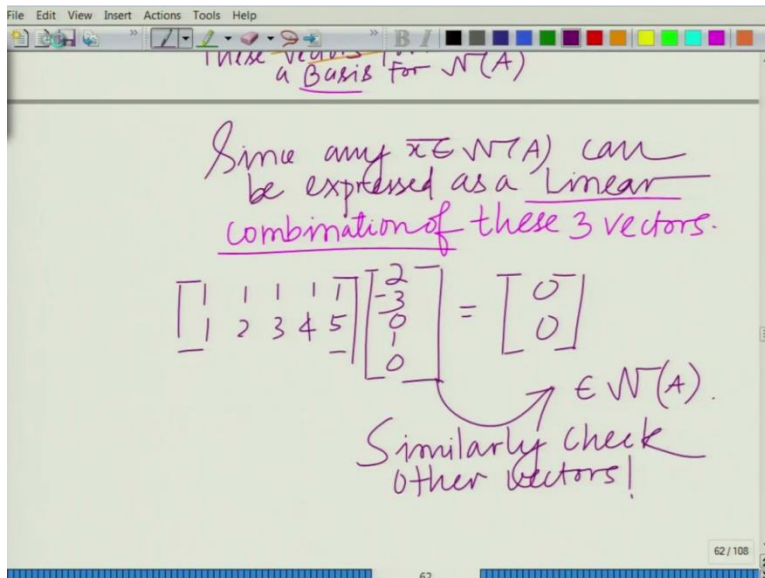 File Edit View Insert Actions Tools Help
These
a Basis for N(A)
Since any x̄ ∈ N(A) can
be expressed as a Linear
combination of these 3 vectors.
[1 1 1 1 1; 1 2 3 4 5] [2; -3; 0; 1; 0] = [0; 0]
∈ N(A).
Similarly check
other vectors!
62 / 108
62